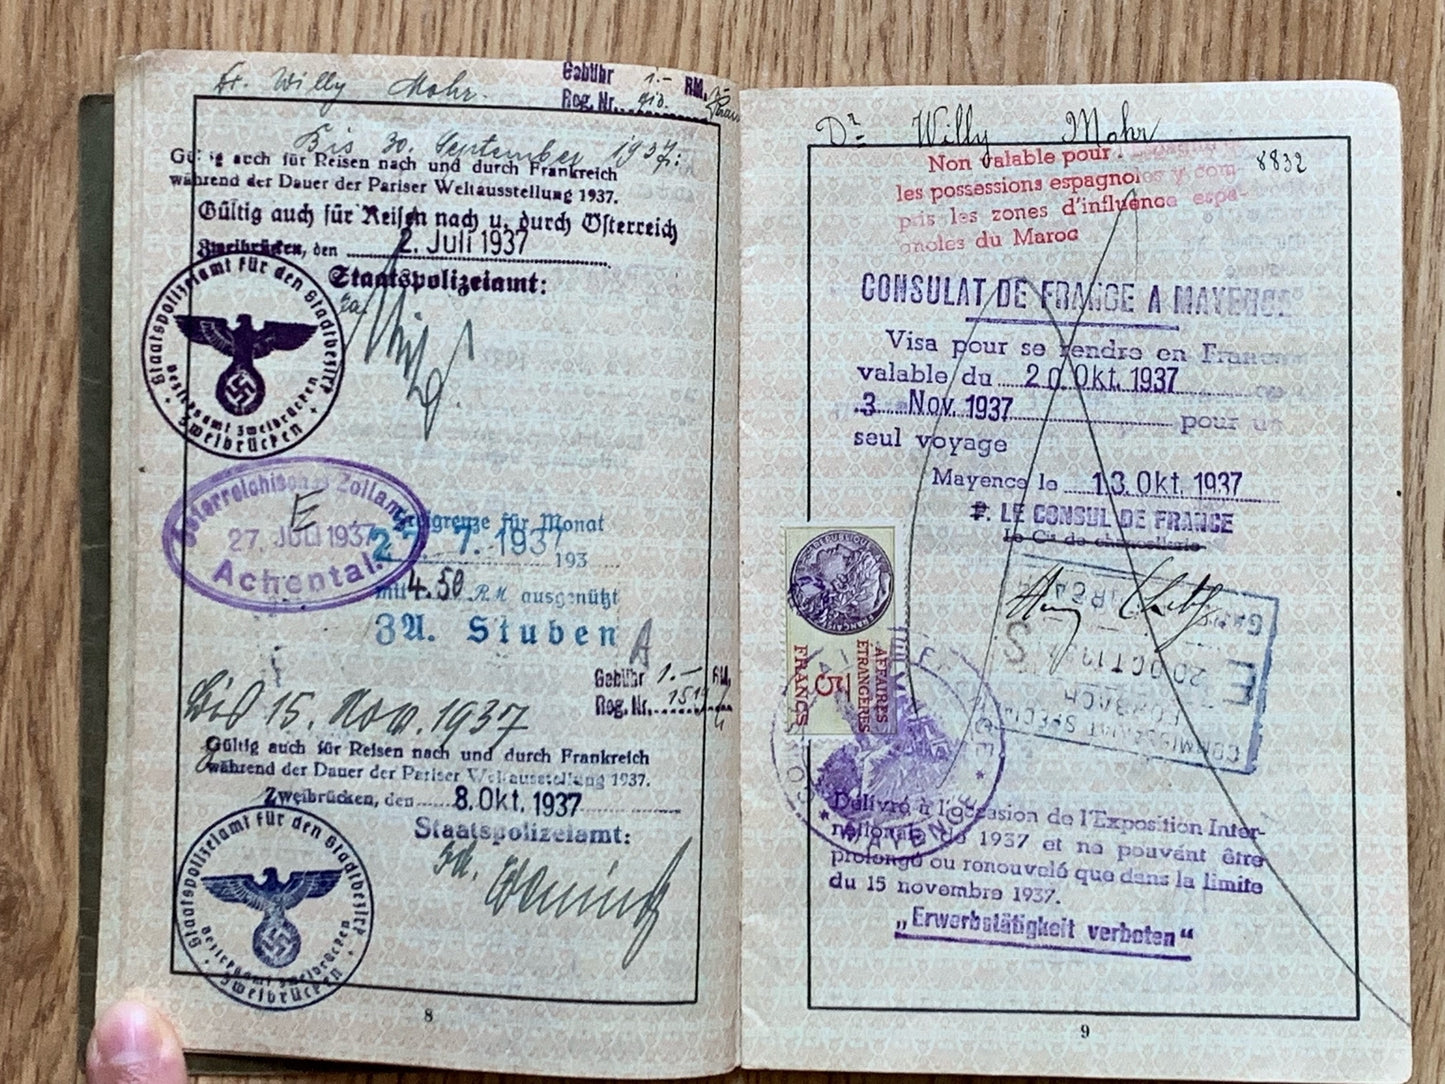 Dr. Willy Mohr.
Gebühr 1.- RM.
Reg. Nr.
Bis 30. September 1937:
Gültig auch für Reisen nach und durch Frankreich
während der Dauer der Pariser Weltausstellung 1937.
Gültig auch für Reisen nach u. durch Österreich
Zweibrücken, den 2. Juli 1937
Staatspolizeiamt:
Staatspolizeiamt für den Stadtbezirk
Bezirksamt Zweibrücken
Zweibrücken
Österreichisches Zollamt
E
27. Juli 1937
Achental.
für Monat
7. 1937 193
mit 4.50 RM ausgenützt
ZA. Stuben
A
Gebühr 1.- RM.
Reg. Nr.
Bis 15. Nov. 1937
Gültig auch für Reisen nach und durch Frankreich
während der Dauer der Pariser Weltausstellung 1937.
Zweibrücken, den 8. Okt. 1937
Staatspolizeiamt:
Staatspolizeiamt für den Stadtbezirk
Bezirksamt Zweibrücken
Zweibrücken
8
Dr Willy Mohr
8832
Non valable pour
les possessions espagnoles y com-
pris les zones d'influence espa-
gnoles du Maroc
CONSULAT DE FRANCE A MAYENCE
Visa pour se rendre en France
valable du 20 Okt. 1937
3 Nov. 1937 pour un
seul voyage
Mayence le 13. Okt. 1937
P. LE CONSUL DE FRANCE
le Cis de chancellerie
REPUBLIQUE FRANÇAISE
AFFAIRES
ETRANGÈRES
5
FRANCS
S
20 OCT 19
E
COMMISSARIAT SPECIAL
MAYENCE
Délivré à l'occasion de l'Exposition Inter-
nationale de 1937 et ne pouvant être
prolongé ou renouvelé que dans la limite
du 15 novembre 1937.
„Erwerbstätigkeit verboten“
9